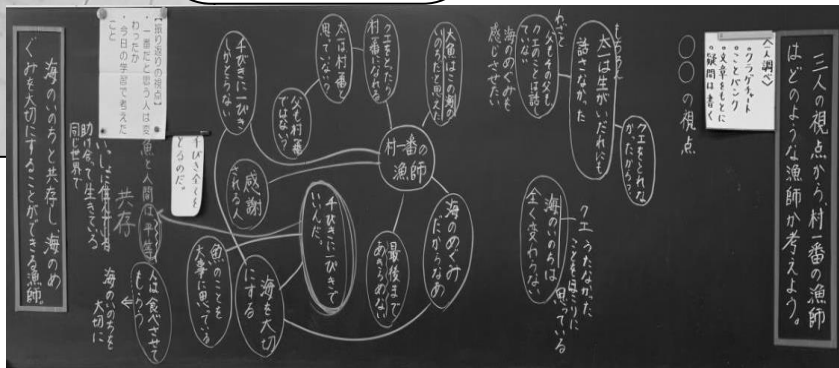 三人の視点から村一番の漁師
はどのような漁師か考えよう。
〈一人調べ〉
・クラゲチャート
・ことバンク
・文章をもとに
・疑問は書く
○○の視点
クエをとれな
かったから？
もちろん
太一は生がいだれにも
話さなかった
わざと
父もその父も
クエのことは話し
ていない
海のめぐみを
感じさせたい
クエ うたなかった
ことをほこりに
思っている
海のいのちは
全く変わらない
大魚はこの海の
いのちだと思えた
クエをとったら
村一番になれる
太一は村一番と
思っていない？
父も村一番
ではない？
千びきに一ぴき
しかとらない
村一番の
漁師
感謝
される人
海のめぐみ
だからなあ
最後まで
あきらめない
千びきに一ぴきで
いいんだ。
海を大切
にする
魚のことを
大事に思っている
千びき全てを
とるのだ。
魚と人間は平等
共存
いっしょに住んでいる
助け合って生きている
同じ世界で
人は食べさせて
もらう
海のいのちを
大切に
【振り返りの視点】
・一番だと思う人は変
わったか
・今日の学習で考えた
こと
海のいのちと共存し、海のめ
ぐみを大切にすることができる漁師。